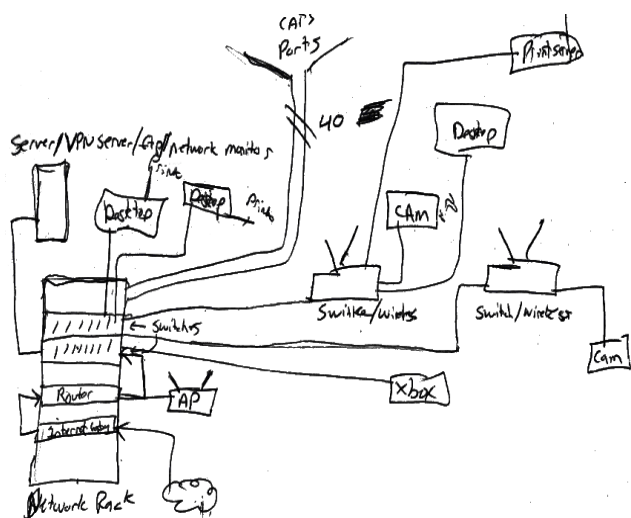 CAT5
Ports
Printserver
40
Desktop
Server/VPN server/ftp/network monitor
Print
Desktop
Desktop
Print
CAM
Switch/wireless
Switch/wireless
Switches
Cam
Xbox
Router
AP
Network Rack